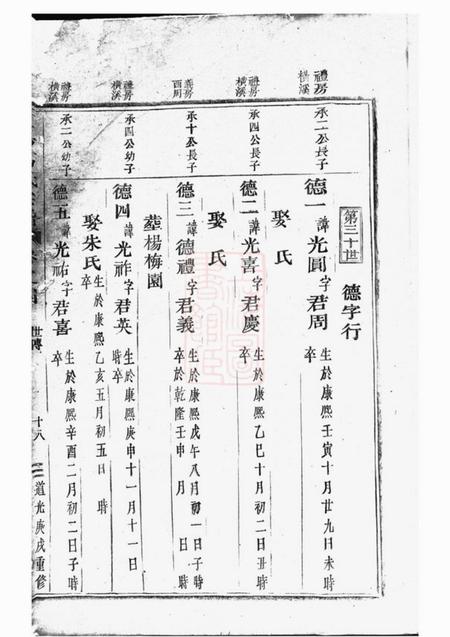 第三十世
德字行
禮房
橫溪
承二公長子
德一諱光圓字君周
生於康熙壬寅十月廿九日未時
卒
娶 氏
禮房
橫溪
承四公長子
德二諱光喜字君慶
生於康熙乙巳十月初二日丑時
卒
娶 氏
義房
西周
承十公長子
德三諱德禮字君義
生於康熙戊午八月初一日子時
卒於乾隆壬申 月 日 時
塟楊梅園
禮房
橫溪
承四公幼子
德四諱光祚字君英
生於康熙庚申十一月十一日
時卒
娶朱氏
生於康熙乙亥五月初五日 時
卒
禮房
橫溪
承二公幼子
德五諱光祐字君喜
生於康熙辛酉二月初二日子時
卒
世傳
十八
道光庚戌重修